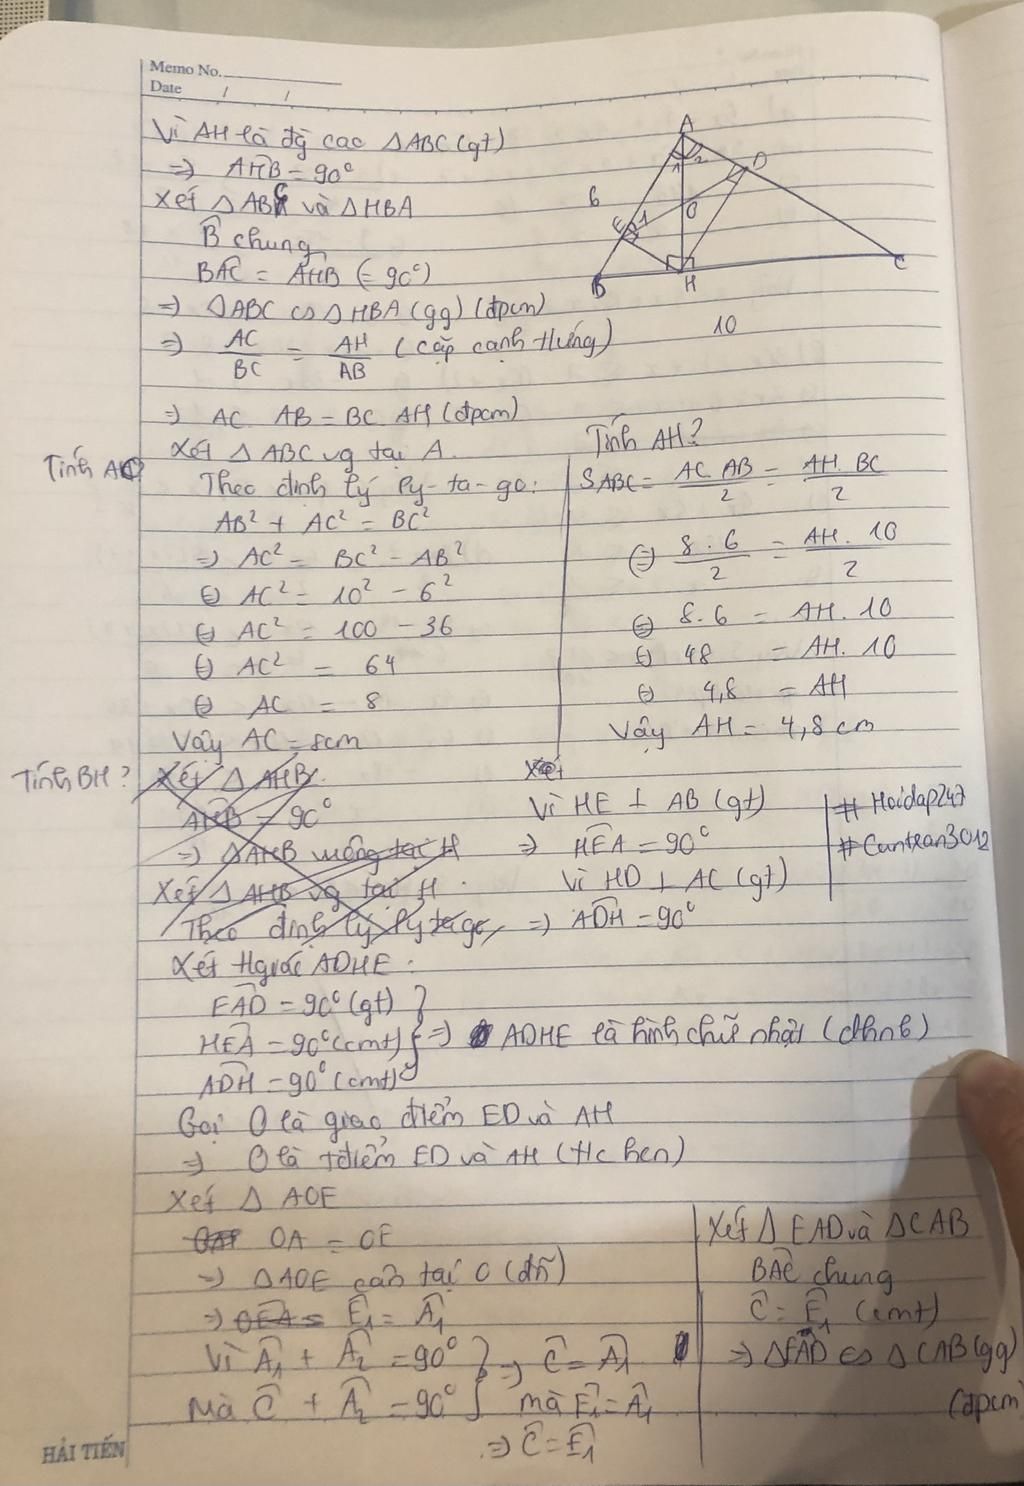 Memo No.
Date / /
Vì AH là đg cao △ABC (gt)
=> AHB = 90°
Xét △ABC và △HBA
B chung
BAC = AHB (= 90°)
=> △ABC ∽ △HBA (gg) (đpcm)
=> AC/BC = AH/AB (cặp cạnh tứ/ứng)
=> AC AB = BC AH (đpcm)
A
1 2
D
6
E 1
O
B
H
C
10
Tính AC?
Xét △ABC vg tại A.
Theo định lý Py-ta-go:
AB² + AC² = BC²
=> AC² = BC² - AB²
⇔ AC² = 10² - 6²
⇔ AC² = 100 - 36
⇔ AC² = 64
⇔ AC = 8
Vậy AC = 8cm
Tính AH?
SABC = AC AB/2 = AH. BC/2
⇔ 8.6/2 = AH. 10/2
⇔ 8.6 = AH. 10
⇔ 48 = AH. 10
⇔ 4,8 = AH
Vậy AH = 4,8 cm
Tính BH?
Xét △AHB.
AHB = 90°
=> △AHB vuông tại H
Xét △AHB vg tại H.
Theo định lý Pytago,
Xét
Vì HE ⊥ AB (gt)
=> HEA = 90°
Vì HD ⊥ AC (gt)
=> ADH = 90°
# Hoidap247
# Cuntran3012
Xét tgiác ADHE:
EAD = 90° (gt)
HEA = 90° (cmt) } => ADHE là hình chữ nhật (dhnb)
ADH = 90° (cmt)
Gọi O là giao điểm ED và AH
=> O là tđiểm ED và AH (t/c hcn)
Xét △AOE
OA = OE
=> △AOE cân tại O (đn)
=> OEA = E1 = A1
Vì A1 + A2 = 90° } => C = A1
Mà C + A2 = 90° mà E1 = A1
=> C = E1
Xét △EAD và △CAB
BAC chung
C = E1 (cmt)
=> △EAD ∽ △CAB (gg)
(đpcm)
HẢI TIẾN